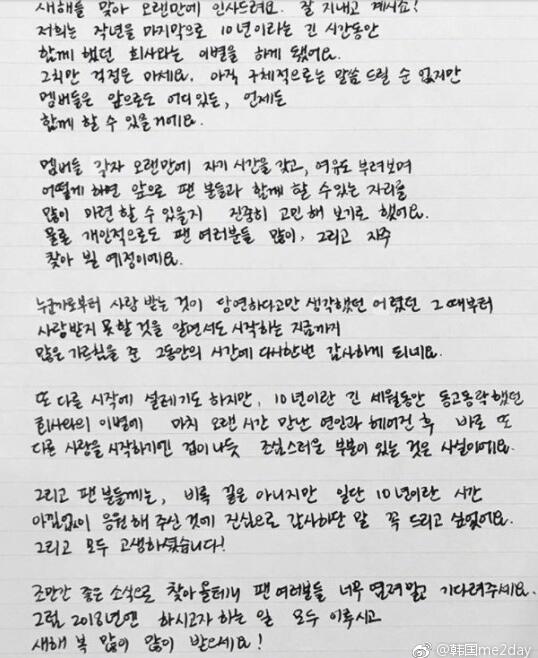 새해를 맞아 오랜만에 인사드려요. 잘 지내고 계시죠!
저희는 작년을 마지막으로 10년이라는 긴 시간동안
함께 했던 회사와는 이별을 하게 됐어요.
그치만 걱정은 마세요. 아직 구체적으로는 말씀 드릴 순 없지만
멤버들은 앞으로도 어디 있든, 언제든
함께 할 수 있을거에요.
멤버들 각자 오랜만에 자기 시간을 갖고, 여유도 부려보며
어떻게 하면 앞으로 팬 분들과 함께 할 수 있는 자리를
많이 마련 할 수 있을지 진중히 고민 해 보기로 했어요.
물론 개인적으로도 팬 여러분들 많이, 그리고 자주
찾아 뵐 예정이에요.
누군가로부터 사랑 받는 것이 당연하다고만 생각했던 어렸던 그 때부터
사랑받지 못할 것을 알면서도 시작하는 지금까지
많은 가르침을 준 그동안의 시간에 다시한번 감사하게 되네요.
또 다른 시작에 설레기도 하지만, 10년이란 긴 세월동안 동고동락했던
회사와의 이별에 마치 오랜 시간 만난 연인과 헤어진 후 바로 또
다른 사랑을 시작하기엔 겁이 나듯 조심스러운 부분이 있는 것은 사실이에요.
그리고 팬 분들께는, 비록 끝은 아니지만 일단 10년이란 시간
아낌없이 응원 해 주신 것에 진심으로 감사하단 말 꼭 드리고 싶었어요.
그리고 모두 고생하셨습니다!
조만간 좋은 소식으로 찾아올테니 팬 여러분들 너무 염려말고 기다려주세요.
그럼 2018년엔 하시고자 하는 일 모두 이루시고
새해 복 많이 많이 받으세요!
@韩国me2day